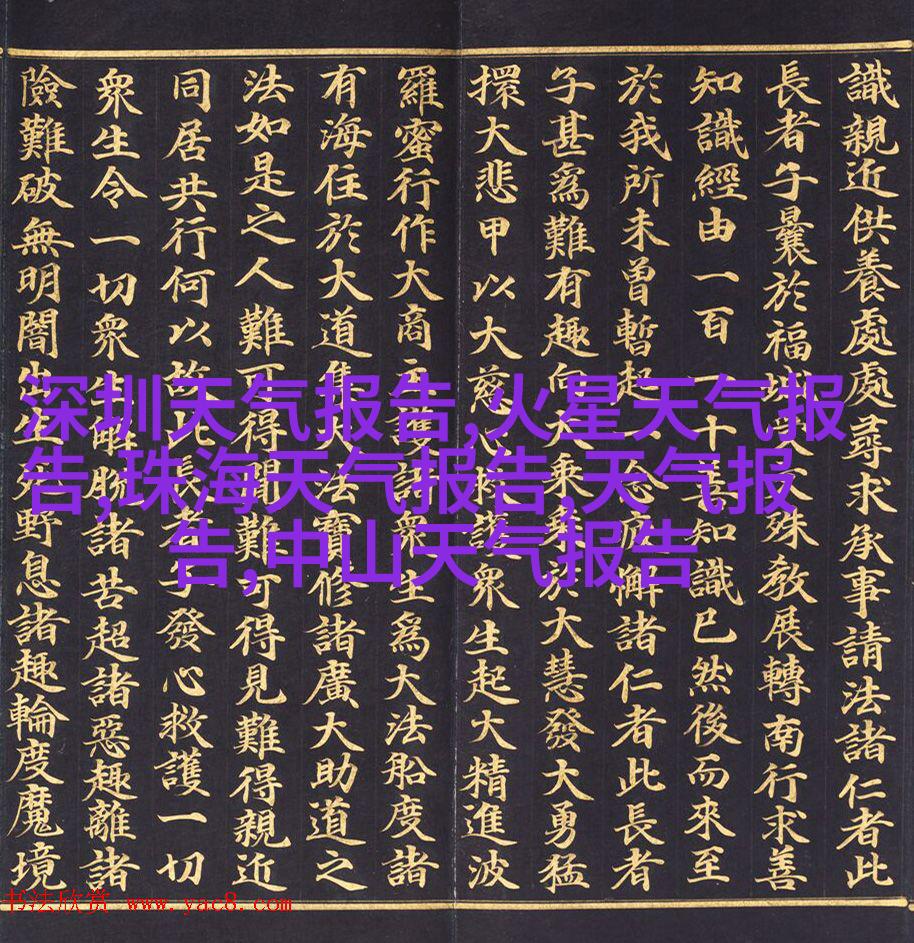 識親近供養處處尋求承事請法諸仁者此
長者子曩於福城受文殊教展轉南行求善
知識經由一百一十善知識已然後而來至
於我所未曾暫起一念疲懈諸仁者此長者
子甚爲難有趣向大乘乘於大慧發大勇猛
擐大悲甲以大慈心救護衆生起大精進波
羅蜜行作大商主護諸衆生爲大法船度諸
有海住於大道集大法寶修諸廣大助道之
法如是之人難可得聞難可得見難得親近
同居共行何以故此長者子發心救護一切
衆生令一切衆生解脫諸苦超諸惡趣離諸
險難破無明闇出生死野息諸趣輪度魔境
深圳天气报告,火星天气报
告,珠海天气报告,天气报
告,中山天气报告
书法欣赏 www.yac8.com